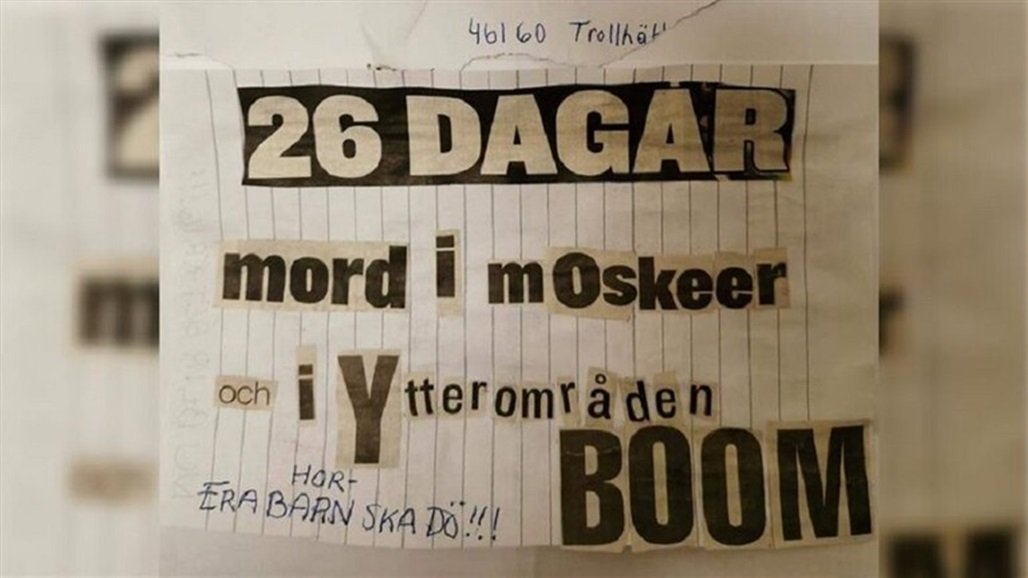 461 60 Trollhät
26 DAGAR
mord i mOskeer
och i Ytterområden
BOOM
HOR-
ERA BARN SKA DÖ!!!